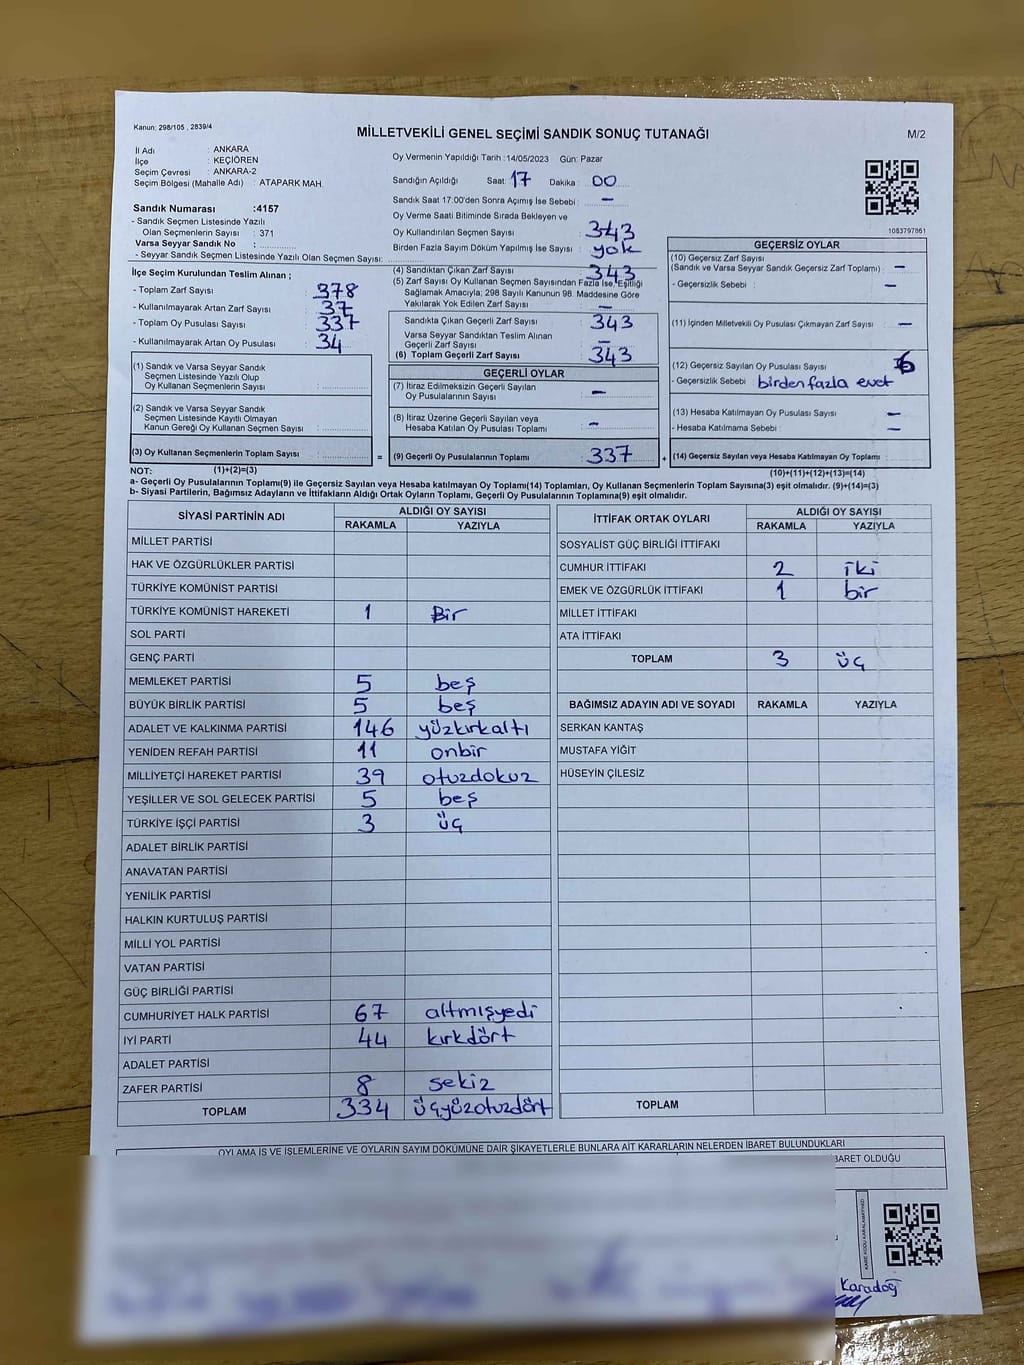 Kanun: 298/105 , 2839/4
MİLLETVEKİLİ GENEL SEÇİMİ SANDIK SONUÇ TUTANAĞI
M/2
İl Adı : ANKARA
İlçe : KEÇİÖREN
Seçim Çevresi : ANKARA-2
Seçim Bölgesi (Mahalle Adı) : ATAPARK MAH.
Sandık Numarası :4157
- Sandık Seçmen Listesinde Yazılı
Olan Seçmenlerin Sayısı : 371
Varsa Seyyar Sandık No :
- Seyyar Sandık Seçmen Listesinde Yazılı Olan Seçmen Sayısı:
Oy Vermenin Yapıldığı Tarih :14/05/2023 Gün: Pazar
Sandığın Açıldığı Saat: 17 Dakika : 00
Sandık Saat 17:00'den Sonra Açımış İse Sebebi : –
Oy Verme Saati Bitiminde Sırada Bekleyen ve
Oy Kullandırılan Seçmen Sayısı : 343
Birden Fazla Sayım Döküm Yapılmış İse Sayısı : yok
1083797861
İlçe Seçim Kurulundan Teslim Alınan ;
- Toplam Zarf Sayısı : 378
- Kullanılmayarak Artan Zarf Sayısı : 37
- Toplam Oy Pusulası Sayısı : 337
- Kullanılmayarak Artan Oy Pusulası : 34
(1) Sandık ve Varsa Seyyar Sandık
Seçmen Listesinde Yazılı Olup
Oy Kullanan Seçmenlerin Sayısı :
(2) Sandık ve Varsa Seyyar Sandık
Seçmen Listesinde Kayıtlı Olmayan
Kanun Gereği Oy Kullanan Seçmen Sayısı :
(3) Oy Kullanan Seçmenlerin Toplam Sayısı :
(1)+(2)=(3)
(4) Sandıktan Çıkan Zarf Sayısı : 343
(5) Zarf Sayısı Oy Kullanan Seçmen Sayısından Fazla İse, Eşitliği
Sağlamak Amacıyla; 298 Sayılı Kanunun 98. Maddesine Göre
Yakılarak Yok Edilen Zarf Sayısı : –
Sandıkta Çıkan Geçerli Zarf Sayısı : 343
Varsa Seyyar Sandıktan Teslim Alınan
Geçerli Zarf Sayısı : –
(6) Toplam Geçerli Zarf Sayısı : 343
GEÇERLİ OYLAR
(7) İtiraz Edilmeksizin Geçerli Sayılan
Oy Pusulalarının Sayısı : –
(8) İtiraz Üzerine Geçerli Sayılan veya
Hesaba Katılan Oy Pusulası Toplamı : –
= (9) Geçerli Oy Pusulalarının Toplamı : 337 +
GEÇERSİZ OYLAR
(10) Geçersiz Zarf Sayısı
(Sandık ve Varsa Seyyar Sandık Geçersiz Zarf Toplamı) : –
- Geçersizlik Sebebi : –
(11) İçinden Milletvekili Oy Pusulası Çıkmayan Zarf Sayısı : –
(12) Geçersiz Sayılan Oy Pusulası Sayısı : 6
- Geçersizlik Sebebi : birden fazla evet
(13) Hesaba Katılmayan Oy Pusulası Sayısı : –
- Hesaba Katılmama Sebebi : –
(14) Geçersiz Sayılan veya Hesaba Katılmayan Oy Pusulası Toplamı :
(10)+(11)+(12)+(13)=(14)
NOT:
a- Geçerli Oy Pusulalarının Toplamı(9) ile Geçersiz Sayılan veya Hesaba katılmayan Oy Toplamı(14) Toplamları, Oy Kullanan Seçmenlerin Toplam Sayısına(3) eşit olmalıdır. (9)+(14)=(3)
b- Siyasi Partilerin, Bağımsız Adayların ve İttifakların Aldığı Ortak Oyların Toplamı, Geçerli Oy Pusulalarının Toplamına(9) eşit olmalıdır.
SİYASİ PARTİNİN ADI ALDIĞI OY SAYISI
RAKAMLA YAZIYLA
MİLLET PARTİSİ
HAK VE ÖZGÜRLÜKLER PARTİSİ
TÜRKİYE KOMÜNİST PARTİSİ
TÜRKİYE KOMÜNİST HAREKETİ 1 Bir
SOL PARTİ
GENÇ PARTİ
MEMLEKET PARTİSİ 5 beş
BÜYÜK BİRLİK PARTİSİ 5 beş
ADALET VE KALKINMA PARTİSİ 146 yüzkırkaltı
YENİDEN REFAH PARTİSİ 11 onbir
MİLLİYETÇİ HAREKET PARTİSİ 39 otuzdokuz
YEŞİLLER VE SOL GELECEK PARTİSİ 5 beş
TÜRKİYE İŞÇİ PARTİSİ 3 üç
ADALET BİRLİK PARTİSİ
ANAVATAN PARTİSİ
YENİLİK PARTİSİ
HALKIN KURTULUŞ PARTİSİ
MİLLİ YOL PARTİSİ
VATAN PARTİSİ
GÜÇ BİRLİĞİ PARTİSİ
CUMHURİYET HALK PARTİSİ 67 altmışyedi
İYİ PARTİ 44 kırkdört
ADALET PARTİSİ
ZAFER PARTİSİ 8 sekiz
TOPLAM 334 üçyüzotuzdört
İTTİFAK ORTAK OYLARI ALDIĞI OY SAYISI
RAKAMLA YAZIYLA
SOSYALİST GÜÇ BİRLİĞİ İTTİFAKI
CUMHUR İTTİFAKI 2 iki
EMEK VE ÖZGÜRLÜK İTTİFAKI 1 bir
MİLLET İTTİFAKI
ATA İTTİFAKI
TOPLAM 3 üç
BAĞIMSIZ ADAYIN ADI VE SOYADI RAKAMLA YAZIYLA
SERKAN KANTAŞ
MUSTAFA YİĞİT
HÜSEYİN ÇİLESİZ
TOPLAM
OYLAMA İŞ VE İŞLEMLERİNE VE OYLARIN SAYIM DÖKÜMÜNE DAİR ŞİKAYETLERLE BUNLARA AİT KARARLARIN NELERDEN İBARET BULUNDUKLARI
BARET OLDUĞU
Karadoğ